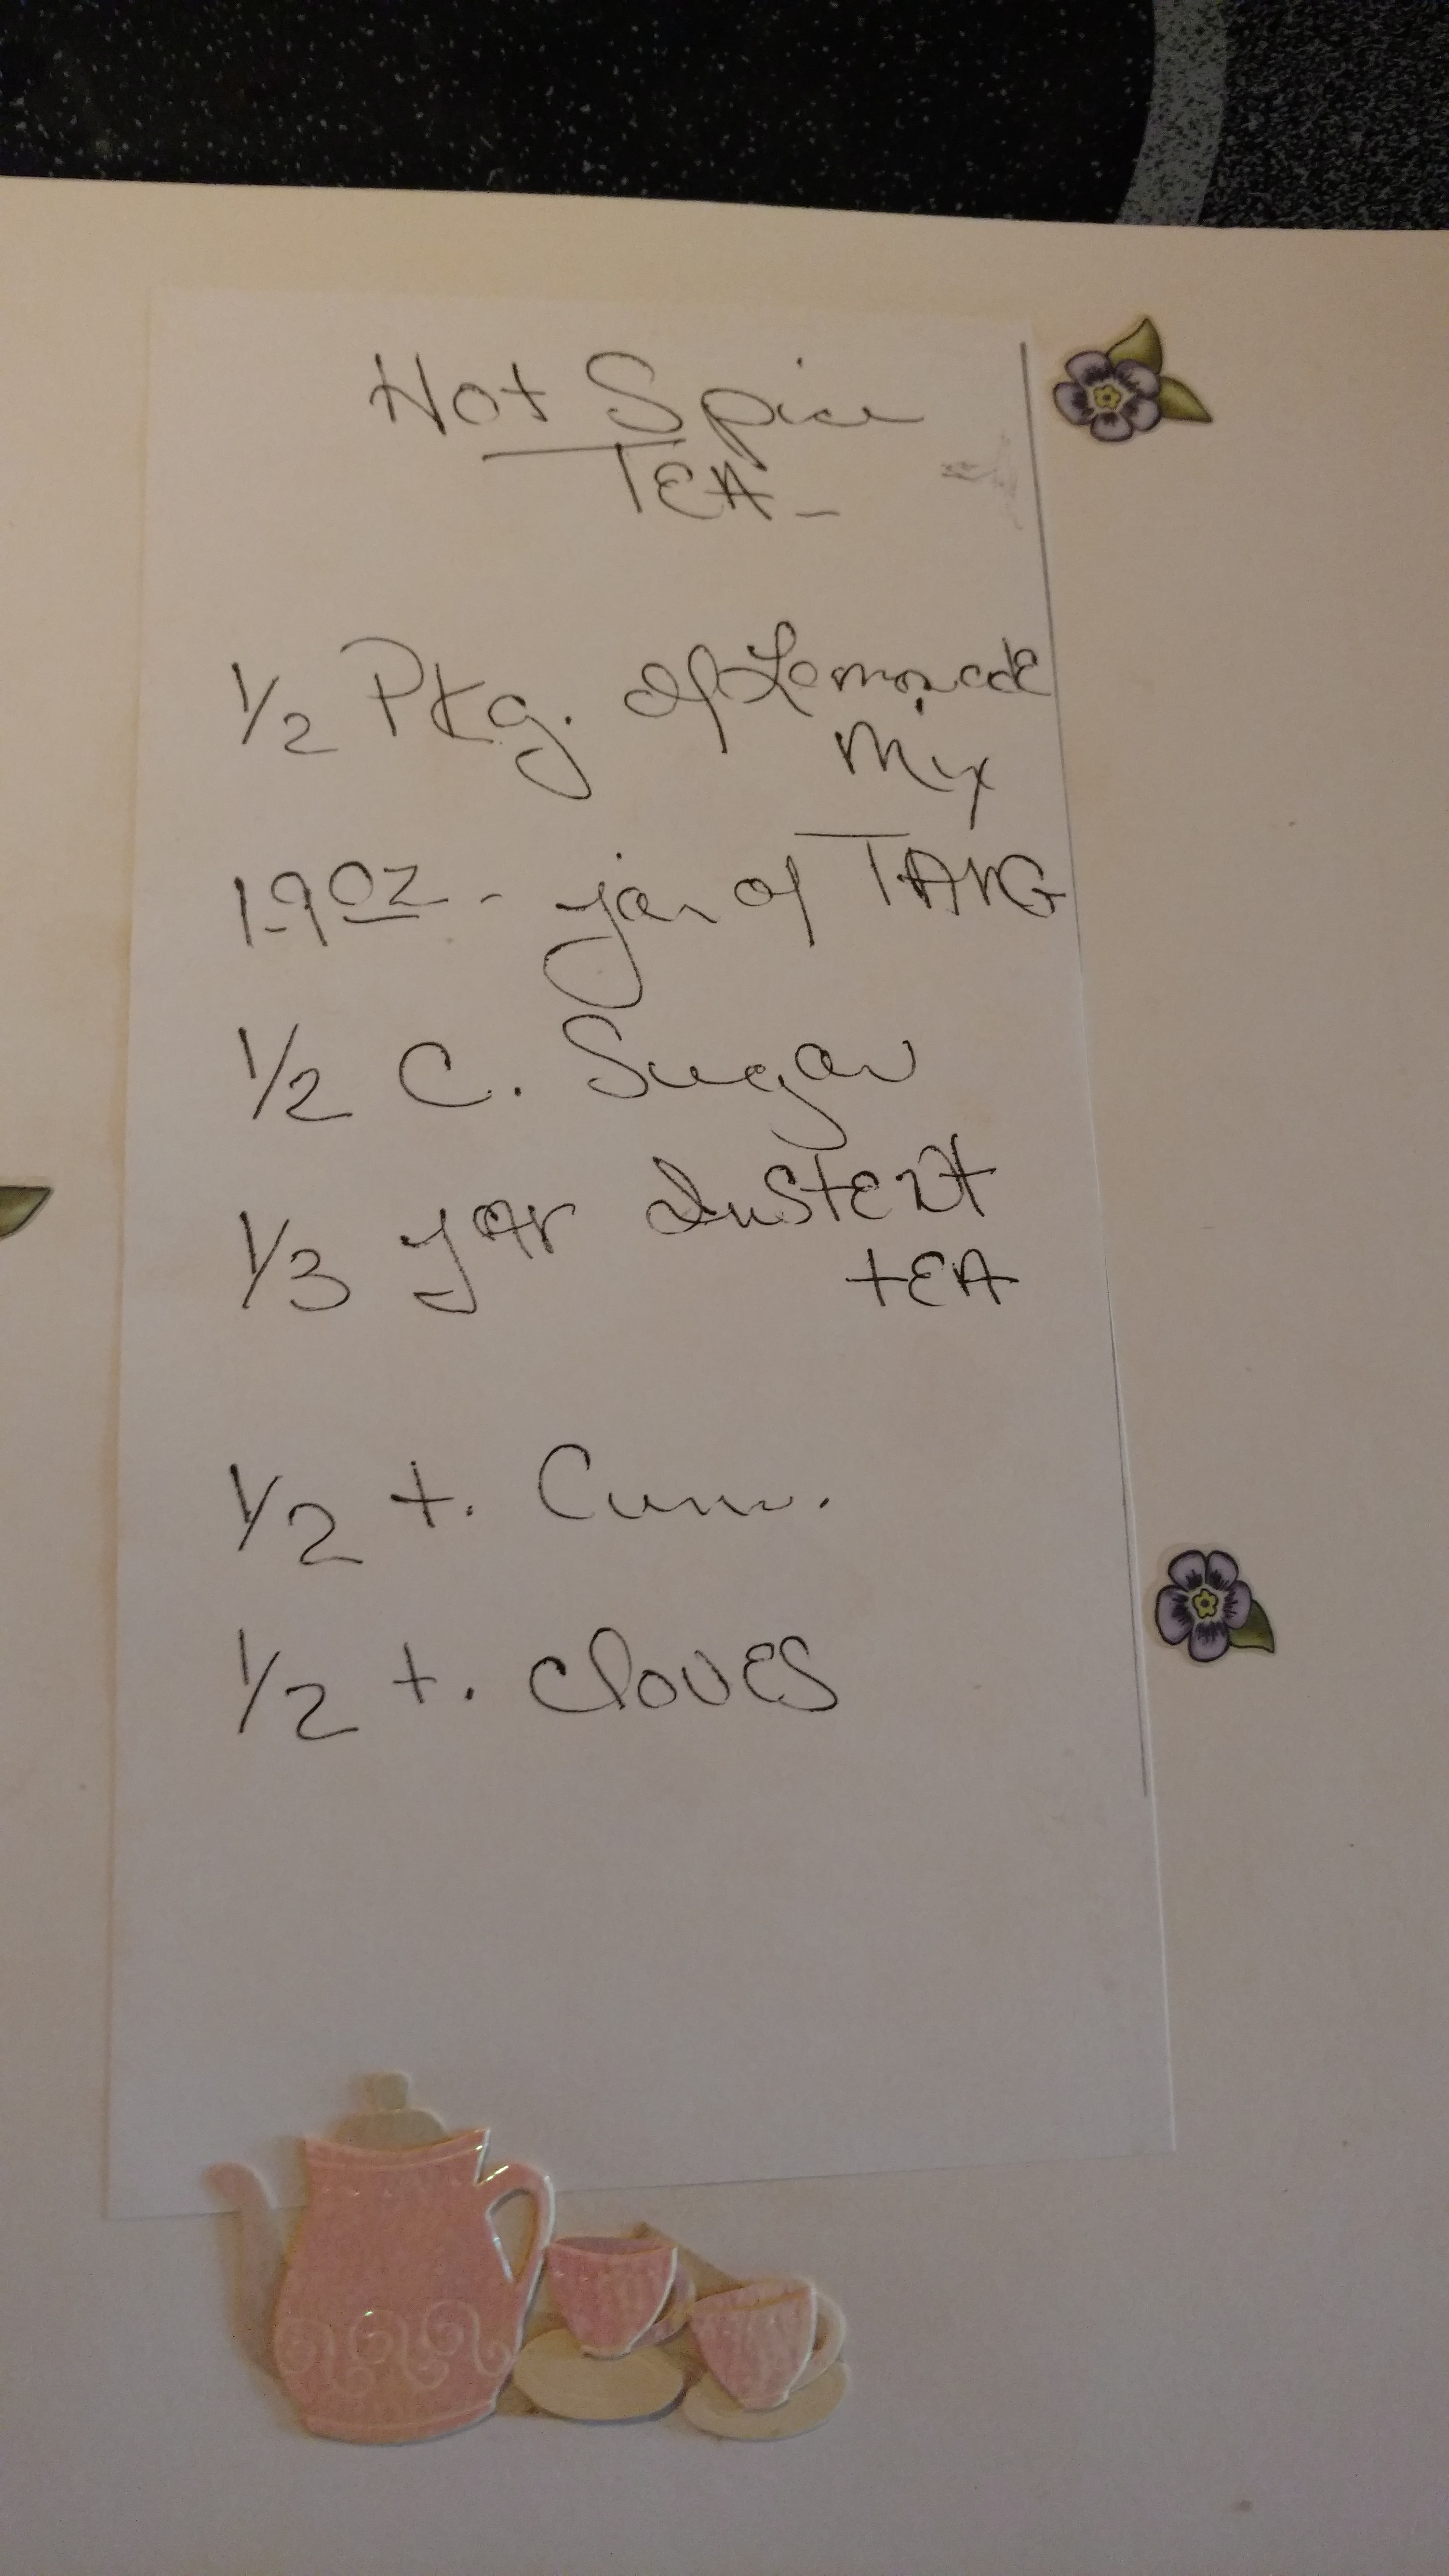 Hot Spice
TEA -
1/2 Pkg. of Lemonade
Mix
1-9 oz - jar of TANG
1/2 C. Sugar
1/3 jar Instent
tEA
1/2 t.
1/2 t. cloves